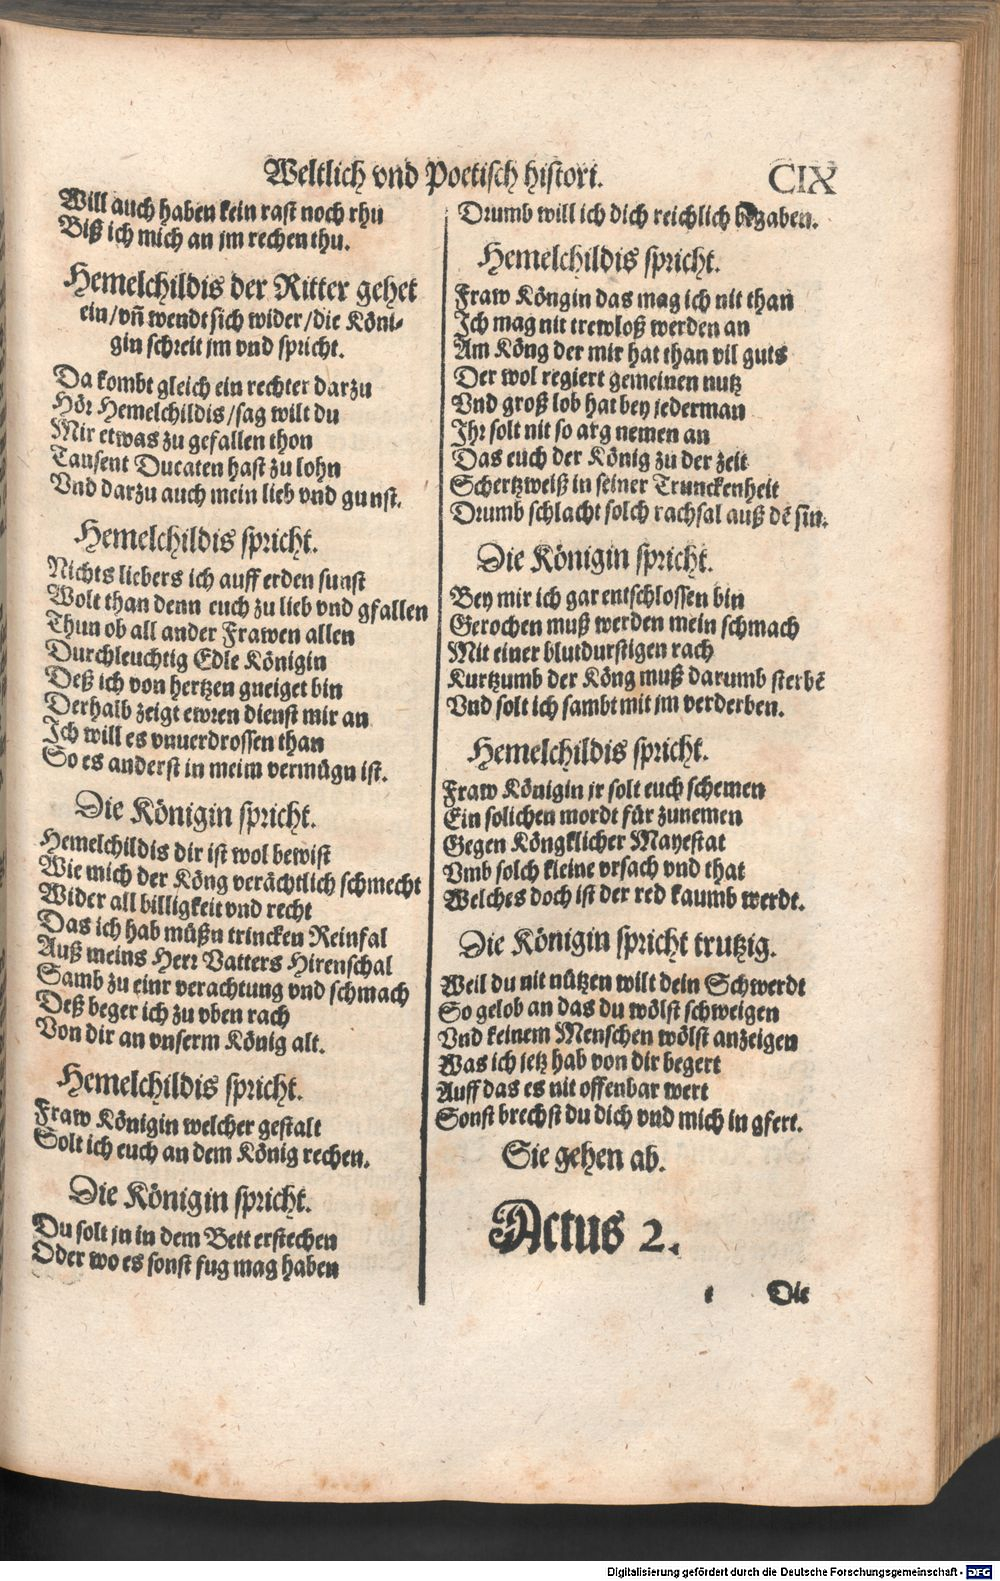 Weltlich vnd Poetisch histori. CIX
Will auch haben kein rast noch rhu
Biß ich mich an jm rechen thu.
Hemelchildis der Ritter gehet
ein/vñ wendt sich wider/die Köni-
gin schreit jm vnd spricht.
Da kombt gleich ein rechter darzu
Hör Hemelchildis/sag wilt du
Mir etwas zu gefallen thon
Tausent Ducaten hast zu lohn
Vnd darzu auch mein lieb vnd gunst.
Hemelchildis spricht.
Nichts liebers ich auff erden sunst
Wolt than denn euch zu lieb vnd gfallen
Thun ob all ander Frawen allen
Durchleuchtig Edle Königin
Deß ich von hertzen gneiget bin
Derhalb zeigt ewren dienst mir an
Ich will es vnuerdrossen than
So es anderst in meim vermügn ist.
Die Königin spricht.
Hemelchildis dir ist wol bewist
Wie mich der Köng verächtlich schmecht
Wider all billigkeit vnd recht
Das ich hab müßn trincken Reinfal
Auß meins Herr Vatters Hirenschal
Samb zu einr verachtung vnd schmach
Deß beger ich zu vben rach
Von dir an vnserm König alt.
Hemelchildis spricht.
Fraw Königin welcher gestalt
Solt ich euch an dem König rechen.
Die Königin spricht.
Du solt jn in dem Bett erstechen
Oder wo es sonst fug mag haben
Drumb will ich dich reichlich begaben.
Hemelchildis spricht.
Fraw Köngin das mag ich nit than
Ich mag nit trewloß werden an
Am Köng der mir hat than vil guts
Der wol regiert gemeinen nutz
Vnd groß lob hat bey jederman
Ihr solt nit so arg nemen an
Das euch der König zu der zeit
Schertzweiß in seiner Trunckenheit
Drumb schlacht solch rachsal auß dẽ sin.
Die Königin spricht.
Bey mir ich gar entschlossen bin
Gerochen muß werden mein schmach
Mit einer blutdurstigen rach
Kurtzumb der Köng muß darumb sterbẽ
Vnd solt ich sambt mit jm verderben.
Hemelchildis spricht.
Fraw Königin jr solt euch schemen
Ein solichen mordt für zunemen
Gegen Köngklicher Mayestat
Vmb solch kleine vrsach vnd that
Welches doch ist der red kaumb werdt.
Die Königin spricht trutzig.
Weil du nit nützen wilt dein Schwerdt
So gelob an das du wölst schweigen
Vnd keinem Menschen wölst anzeigen
Was ich jetz hab von dir begert
Auff das es nit offenbar wert
Sonst brechst du dich vnd mich in gfert.
Sie gehen ab.
Actus 2.
t Die
Digitalisierung gefördert durch die Deutsche Forschungsgemeinschaft - DFG